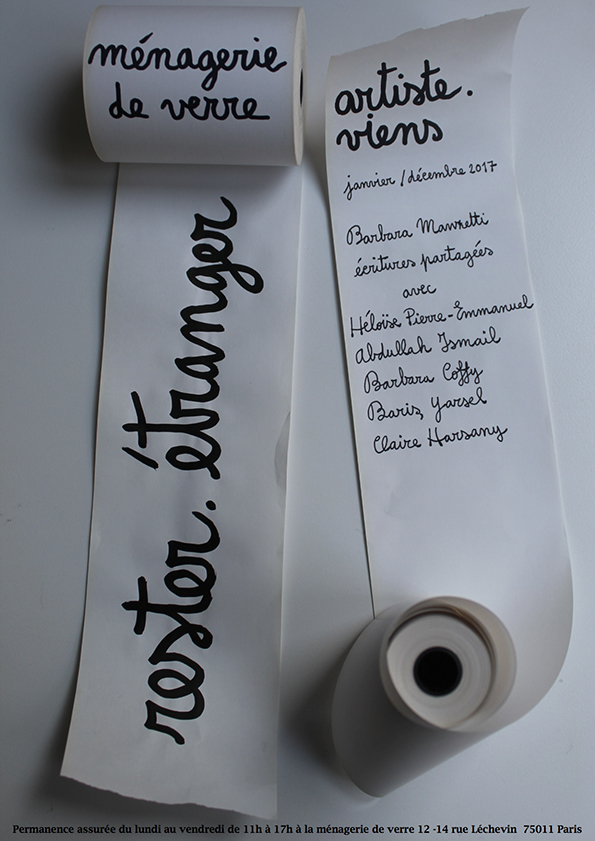 ménagerie
de verre
rester. étranger
artiste.
viens
janvier / décembre 2017
Barbara Manzetti
écritures partagées
avec
Héloïse Pierre-Emmanuel
Abdullah Ismail
Barbara Coffy
Baris, Yarsel
Claire Harsany
Permanence assurée du lundi au vendredi de 11h à 17h à la ménagerie de verre 12 -14 rue Léchevin 75011 Paris